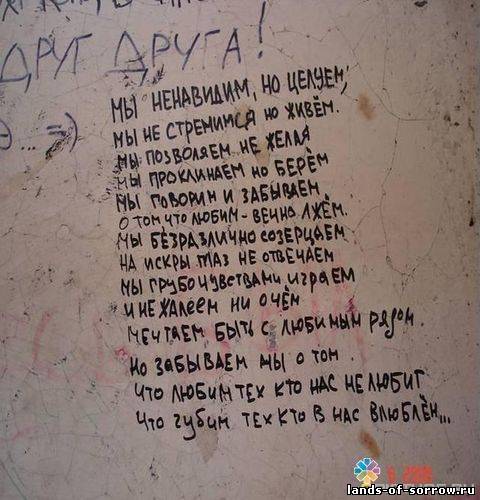 ДРУГ ДРУГА!
Э...=)
МЫ НЕНАВИДИМ, НО ЦЕЛУЕМ,
МЫ НЕ СТРЕМИМСЯ НО ЖИВЁМ.
МЫ ПОЗВОЛЯЕМ НЕ ЖЕЛАЯ
МЫ ПРОКЛИНАЕМ НО БЕРЁМ
МЫ ГОВОРИМ И ЗАБЫВАЕМ
О ТОМ ЧТО ЛЮБИМ - ВЕЧНО ЛЖЁМ.
МЫ БЕЗРАЗЛИЧНО СОЗЕРЦАЕМ
НА ИСКРЫ ГЛАЗ НЕ ОТВЕЧАЕМ
МЫ ГРУБО ЧУВСТВАМИ ИГРАЕМ
И НЕ ЖАЛЕЕМ НИ О ЧЁМ
МЕЧТАЕМ БЫТЬ С ЛЮБИМЫМ РЯДОМ.
НО ЗАБЫВАЕМ МЫ О ТОМ.
ЧТО ЛЮБИМ ТЕХ КТО НАС НЕ ЛЮБИТ
ЧТО ГУБИМ ТЕХ КТО В НАС ВЛЮБЛЁН...
lands-of-sorrow.ru